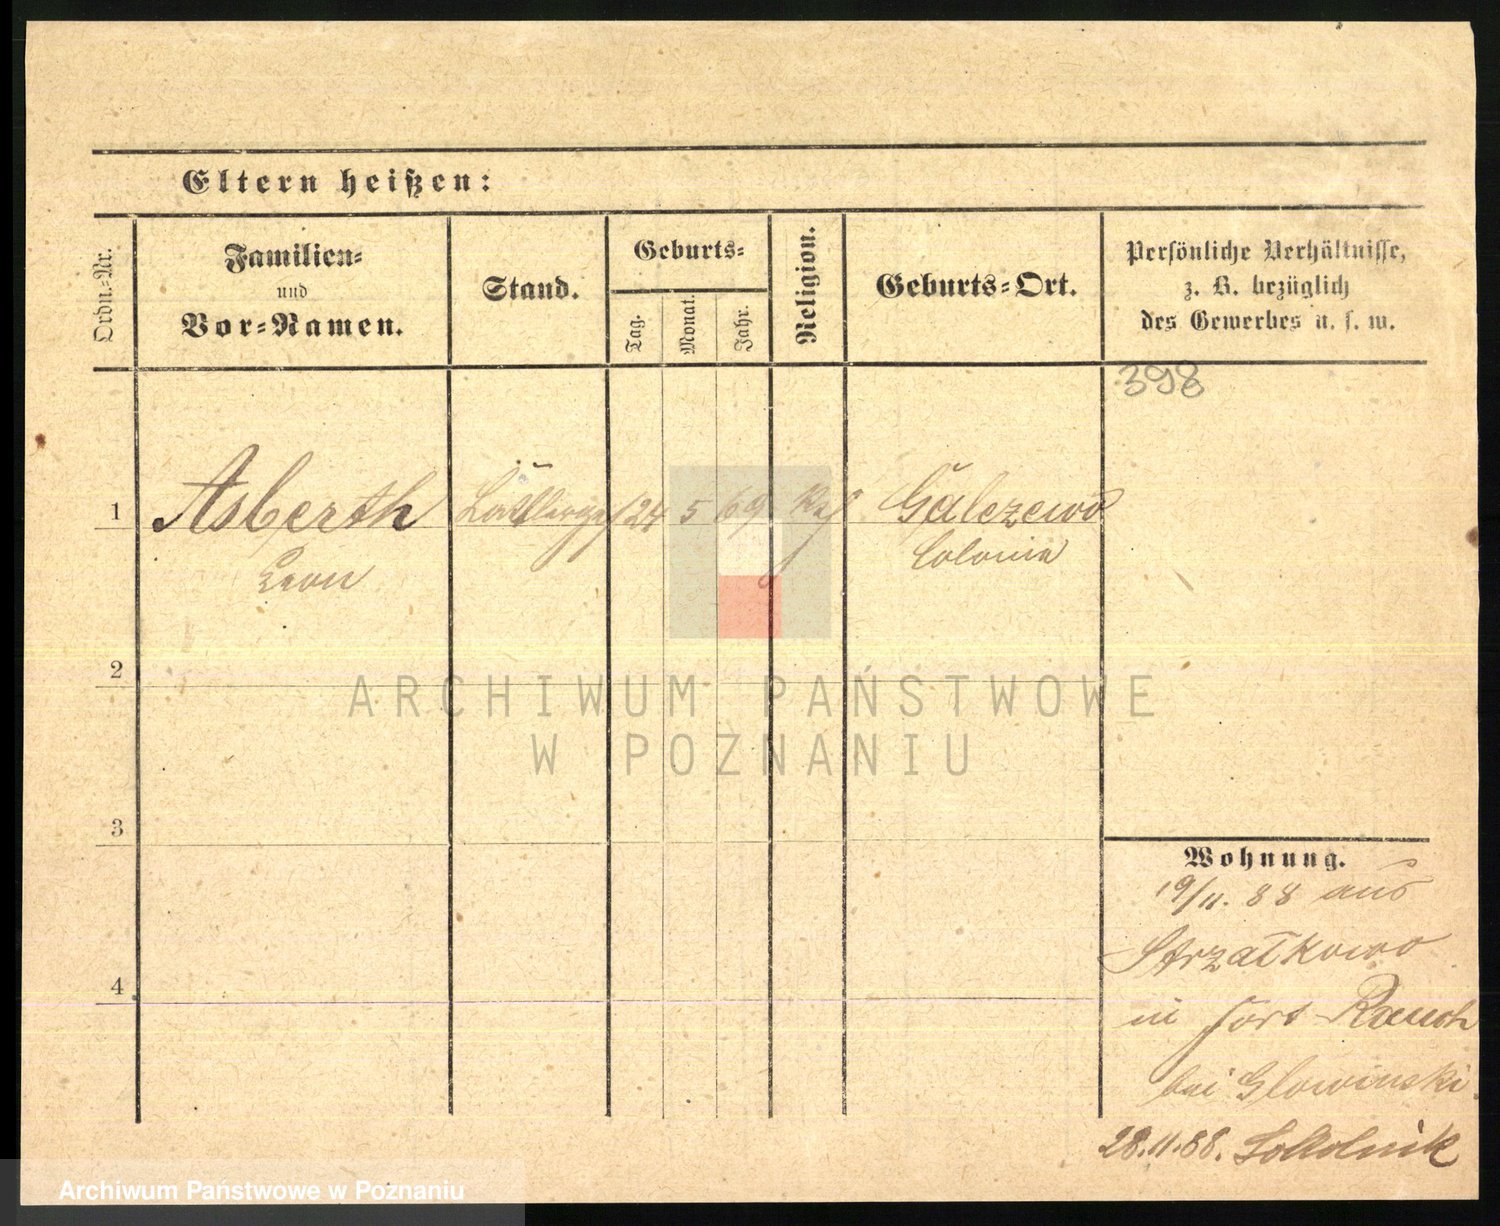 Eltern heißen:
Ordn.-Nr.
Familien-
und
Vor-Namen.
Stand.
Geburts-
Tag.
Monat.
Jahr.
Religion.
Geburts-Ort.
Persönliche Verhältnisse,
z. B. bezüglich
des Gewerbes u. s. w.
398
1 Asberth 24 5 69 Galczewo
Leon Colonie
2
ARCHIWUM PAŃSTWOWE
W POZNANIU
3
Wohnung.
19/11. 88 aus
Strzałkowo
in Fort Rauch
bei Glowinski.
4
28.11.88. Sokolnik
Archiwum Państwowe w Poznaniu